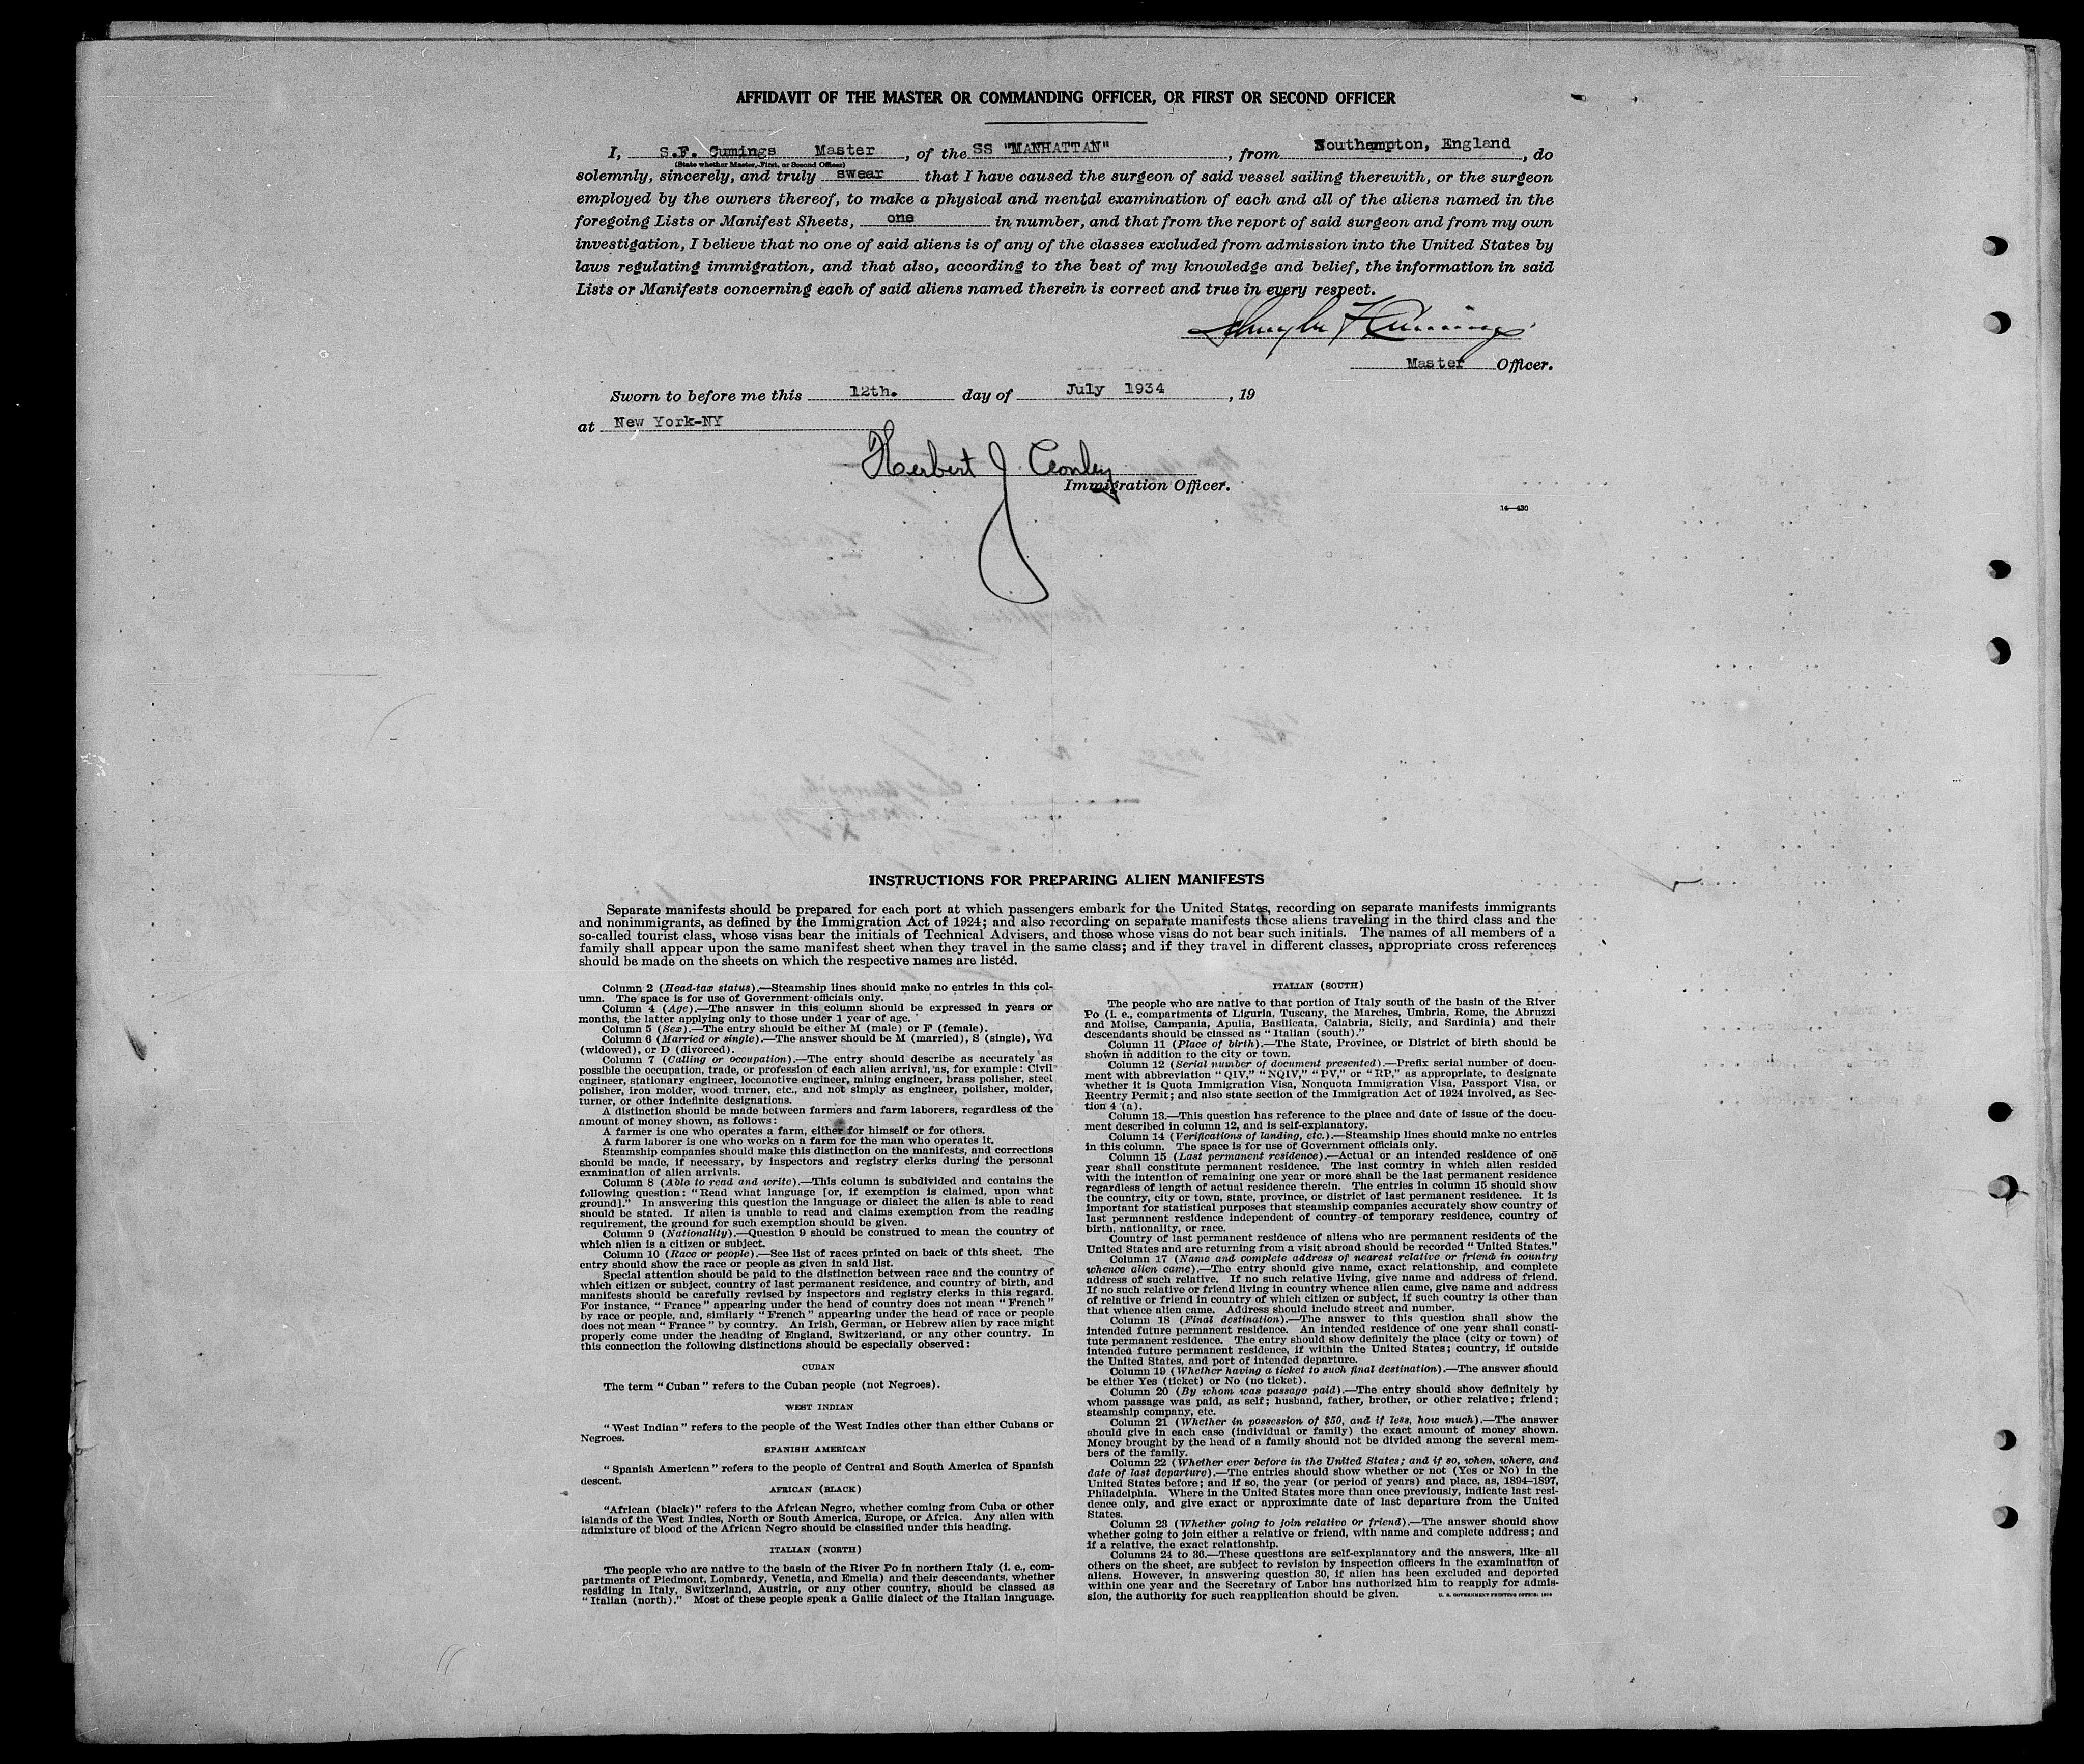 AFFIDAVIT OF THE MASTER OR COMMANDING OFFICER, OR FIRST OR SECOND OFFICER
I, S.F. Cumings Master, of the SS "MANHATTAN", from Southampton, England, do
(State whether Master, First, or Second Officer)
solemnly, sincerely, and truly swear that I have caused the surgeon of said vessel sailing therewith, or the surgeon
employed by the owners thereof, to make a physical and mental examination of each and all of the aliens named in the
foregoing Lists or Manifest Sheets, one in number, and that from the report of said surgeon and from my own
investigation, I believe that no one of said aliens is of any of the classes excluded from admission into the United States by
laws regulating immigration, and that also, according to the best of my knowledge and belief, the information in said
Lists or Manifests concerning each of said aliens named therein is correct and true in every respect.
Schuyler F Cumings
Master Officer.
Sworn to before me this 12th. day of July 1934, 19
at New York-NY
Herbert J Conley
Immigration Officer.
14—430
INSTRUCTIONS FOR PREPARING ALIEN MANIFESTS
Separate manifests should be prepared for each port at which passengers embark for the United States, recording on separate manifests immigrants
and nonimmigrants, as defined by the Immigration Act of 1924; and also recording on separate manifests those aliens traveling in the third class and the
so-called tourist class, whose visas bear the initials of Technical Advisers, and those whose visas do not bear such initials. The names of all members of a
family shall appear upon the same manifest sheet when they travel in the same class; and if they travel in different classes, appropriate cross references
should be made on the sheets on which the respective names are listed.
Column 2 (Head-tax status).—Steamship lines should make no entries in this col-
umn. The space is for use of Government officials only.
Column 4 (Age).—The answer in this column should be expressed in years or
months, the latter applying only to those under 1 year of age.
Column 5 (Sex).—The entry should be either M (male) or F (female).
Column 6 (Married or single).—The answer should be M (married), S (single), Wd
(widowed), or D (divorced).
Column 7 (Calling or occupation).—The entry should describe as accurately as
possible the occupation, trade, or profession of each alien arrival, as, for example: Civil
engineer, stationary engineer, locomotive engineer, mining engineer, brass polisher, steel
polisher, iron molder, wood turner, etc., and not simply as engineer, polisher, molder,
turner, or other indefinite designations.
A distinction should be made between farmers and farm laborers, regardless of the
amount of money shown, as follows:
A farmer is one who operates a farm, either for himself or for others.
A farm laborer is one who works on a farm for the man who operates it.
Steamship companies should make this distinction on the manifests, and corrections
should be made, if necessary, by inspectors and registry clerks during the personal
examination of alien arrivals.
Column 8 (Able to read and write).—This column is subdivided and contains the
following question: "Read what language [or, if exemption is claimed, upon what
ground]." In answering this question the language or dialect the alien is able to read
should be stated. If alien is unable to read and claims exemption from the reading
requirement, the ground for such exemption should be given.
Column 9 (Nationality).—Question 9 should be construed to mean the country of
which alien is a citizen or subject.
Column 10 (Race or people).—See list of races printed on back of this sheet. The
entry should show the race or people as given in said list.
Special attention should be paid to the distinction between race and the country of
which citizen or subject, country of last permanent residence, and country of birth, and
manifests should be carefully revised by inspectors and registry clerks in this regard.
For instance, "France" appearing under the head of country does not mean "French"
by race or people, and, similarly "French" appearing under the head of race or people
does not mean "France" by country. An Irish, German, or Hebrew alien by race might
properly come under the heading of England, Switzerland, or any other country. In
this connection the following distinctions should be especially observed:
CUBAN
The term "Cuban" refers to the Cuban people (not Negroes).
WEST INDIAN
"West Indian" refers to the people of the West Indies other than either Cubans or
Negroes.
SPANISH AMERICAN
"Spanish American" refers to the people of Central and South America of Spanish
descent.
AFRICAN (BLACK)
"African (black)" refers to the African Negro, whether coming from Cuba or other
islands of the West Indies, North or South America, Europe, or Africa. Any alien with
admixture of blood of the African Negro should be classified under this heading.
ITALIAN (NORTH)
The people who are native to the basin of the River Po in northern Italy (i. e., com-
partments of Piedmont, Lombardy, Venetia, and Emelia) and their descendants, whether
residing in Italy, Switzerland, Austria, or any other country, should be classed as
"Italian (north)." Most of these people speak a Gallic dialect of the Italian language.
ITALIAN (SOUTH)
The people who are native to that portion of Italy south of the basin of the River
Po (i. e., compartments of Liguria, Tuscany, the Marches, Umbria, Rome, the Abruzzi
and Molise, Campania, Apulia, Basilicata, Calabria, Sicily, and Sardinia) and their
descendants should be classed as "Italian (south)."
Column 11 (Place of birth).—The State, Province, or District of birth should be
shown in addition to the city or town.
Column 12 (Serial number of document presented).—Prefix serial number of docu-
ment with abbreviation "QIV," "NQIV," "PV," or "RP," as appropriate, to designate
whether it is Quota Immigration Visa, Nonquota Immigration Visa, Passport Visa, or
Reentry Permit; and also state section of the Immigration Act of 1924 involved, as Sec-
tion 4 (a).
Column 13.—This question has reference to the place and date of issue of the docu-
ment described in column 12, and is self-explanatory.
Column 14 (Verifications of landing, etc.).—Steamship lines should make no entries
in this column. The space is for use of Government officials only.
Column 15 (Last permanent residence).—Actual or an intended residence of one
year shall constitute permanent residence. The last country in which alien resided
with the intention of remaining one year or more shall be the last permanent residence
regardless of length of actual residence therein. The entries in column 15 should show
the country, city or town, state, province, or district of last permanent residence. It is
important for statistical purposes that steamship companies accurately show country of
last permanent residence independent of country of temporary residence, country of
birth, nationality, or race.
Country of last permanent residence of aliens who are permanent residents of the
United States and are returning from a visit abroad should be recorded "United States."
Column 17 (Name and complete address of nearest relative or friend in country
whence alien came).—The entry should give name, exact relationship, and complete
address of such relative. If no such relative living, give name and address of friend.
If no such relative or friend living in country whence alien came, give name and address
of relative or friend in country of which citizen or subject, if such country is other than
that whence alien came. Address should include street and number.
Column 18 (Final destination).—The answer to this question shall show the
intended future permanent residence. An intended residence of one year shall consti-
tute permanent residence. The entry should show definitely the place (city or town) of
intended future permanent residence, if within the United States; country, if outside
the United States, and port of intended departure.
Column 19 (Whether having a ticket to such final destination).—The answer should
be either Yes (ticket) or No (no ticket).
Column 20 (By whom was passage paid).—The entry should show definitely by
whom passage was paid, as self; husband, father, brother, or other relative; friend;
steamship company, etc.
Column 21 (Whether in possession of $50, and if less, how much).—The answer
should give in each case (individual or family) the exact amount of money shown.
Money brought by the head of a family should not be divided among the several mem-
bers of the family.
Column 22 (Whether ever before in the United States; and if so, when, where, and
date of last departure).—The entries should show whether or not (Yes or No) in the
United States before; and if so, the year (or period of years) and place, as, 1894–1897,
Philadelphia. Where in the United States more than once previously, indicate last resi-
dence only, and give exact or approximate date of last departure from the United
States.
Column 23 (Whether going to join relative or friend).—The answer should show
whether going to join either a relative or friend, with name and complete address; and
if a relative, the exact relationship.
Columns 24 to 36.—These questions are self-explanatory and the answers, like all
others on the sheet, are subject to revision by inspection officers in the examination of
aliens. However, in answering question 30, if alien has been excluded and deported
within one year and the Secretary of Labor has authorized him to reapply for admis-
sion, the authority for such reapplication should be given.
U. S. GOVERNMENT PRINTING OFFICE: